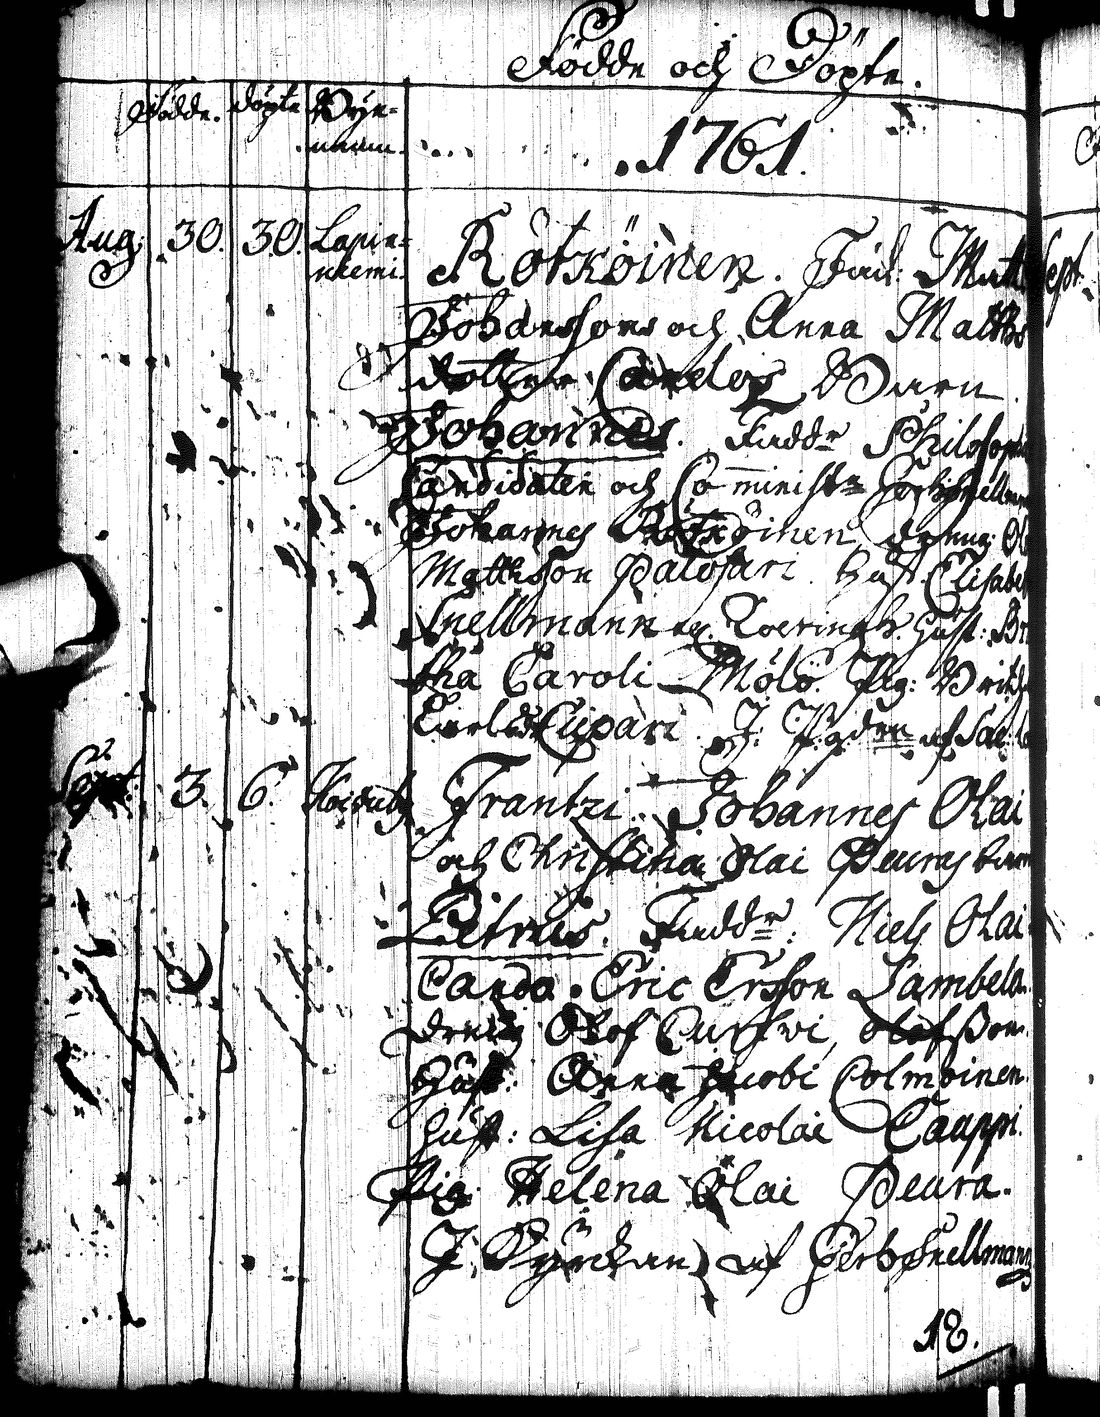 Födde och Döpte.
Födde. Döpte Byn-
namn.
1761.
Aug: 30. 30. Lapin-
niemi.
Rötköinen. Fad: Matt
Johansson och Anna Matths
dotter Barn
Johannes. Faddr Philosoph
Candidaten och Comministr
Johannes Rötköinen, dräng: Ol
Mattsson Palojari. Hust: Elisabet
Snellmann Hust: Bri
tha Caroli Mölö. Pig: Brita
Carlsd Cupari. J. af Sac:
Sept: 3. 6.
Frantzi. Johannes Olai
och Christina Olai Peuras barn
Petrus. Faddr: Niels Olai
Canda. Eric Ersson Lambela
dreng Olof Olofsson
Hust: Anna Jacobi Colmoinen
Hust: Lisa Nicolai Cauppi.
Pig: Helena Olai Peura.
J. Kyrckan, af Her Snellmann
18.